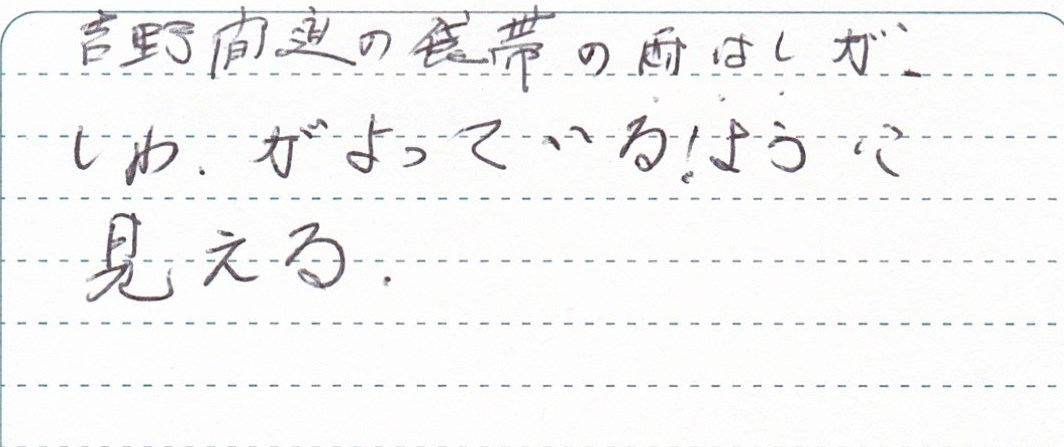 吉野間近の袋帯の両はしが、
しわ.がよっている!ように
見える.